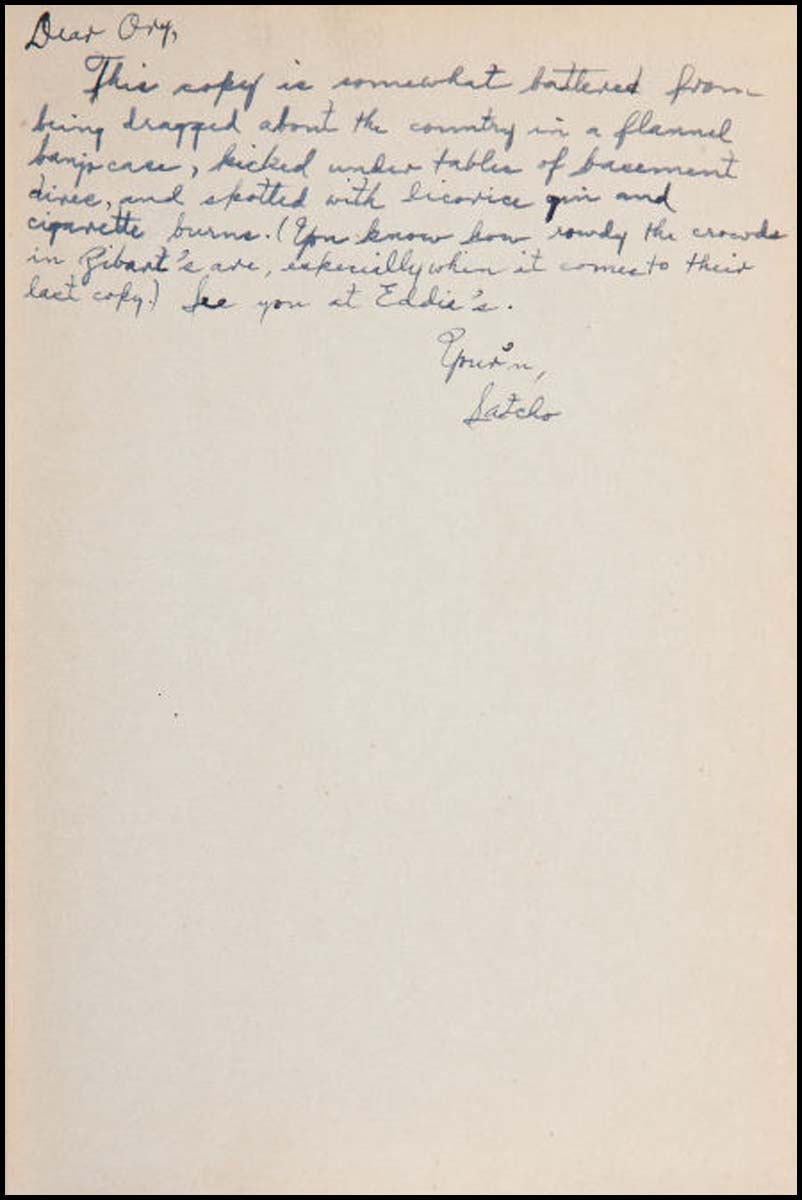 Dear Ory,
This copy is somewhat battered from
being dragged about the country in a flannel
banjo case, kicked under tables of basement
dives, and spotted with licorice gin and
cigarette burns. (You know how rowdy the crowds
in Zibart's are, especially when it comes to their
last copy.) See you at Eddie's.
Your'n,
Satcho